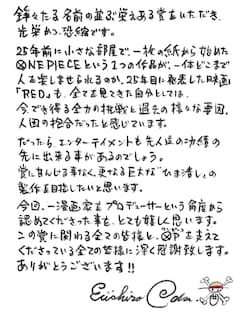 錚々たる名前の並ぶ栄えある賞をいただき、
光栄かつ恐縮です。
25年前に小さな部屋で、一枚の紙から始めた
ONE PIECEという1つの作品が、一体どこまで
人を楽しませられるのか、25年目に発表した映画
「RED」も、全てを見てきた自分としては、
今でき得る全力の挑戦と過去の様々な要因、
人図の抱合だったと感じています。
だったら、エンターテイメントも先人達の功績の
先に出来る事があるのでしょう。
賞に甘んじる事なく、更なる巨大な"ひま潰し"の
製作を目指したいと思います。
今回、一漫画家をプロデューサーという角度から
認めてくださった事も、とても嬉しく思います。
この賞に関わる全ての皆様と、を支えて
くださっている全ての皆様に深く感謝致します。
ありがとうございます!!
Eiichiro Oda.